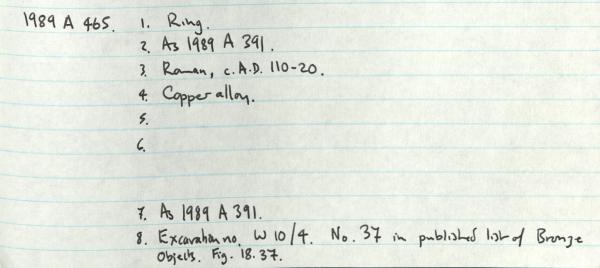 1989 A 465. 1. Ring.
2. As 1989 A 391.
3. Roman, c. A.D. 110-20.
4. Copper alloy.
5.
6.
7. As 1989 A 391.
8. Excavation no. W 10/4. No. 37 in published list of Bronze
Objects. Fig. 18.37.